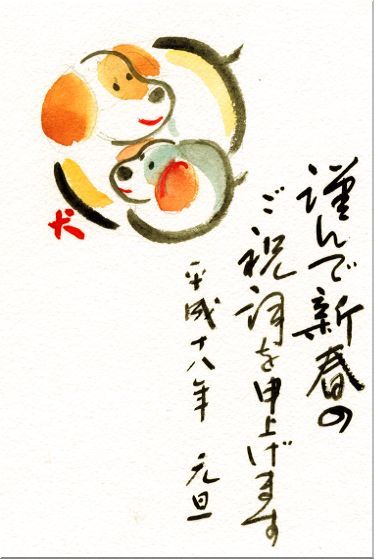 謹んで新春の
ご祝詞を申上げます
平成十八年 元旦
犬